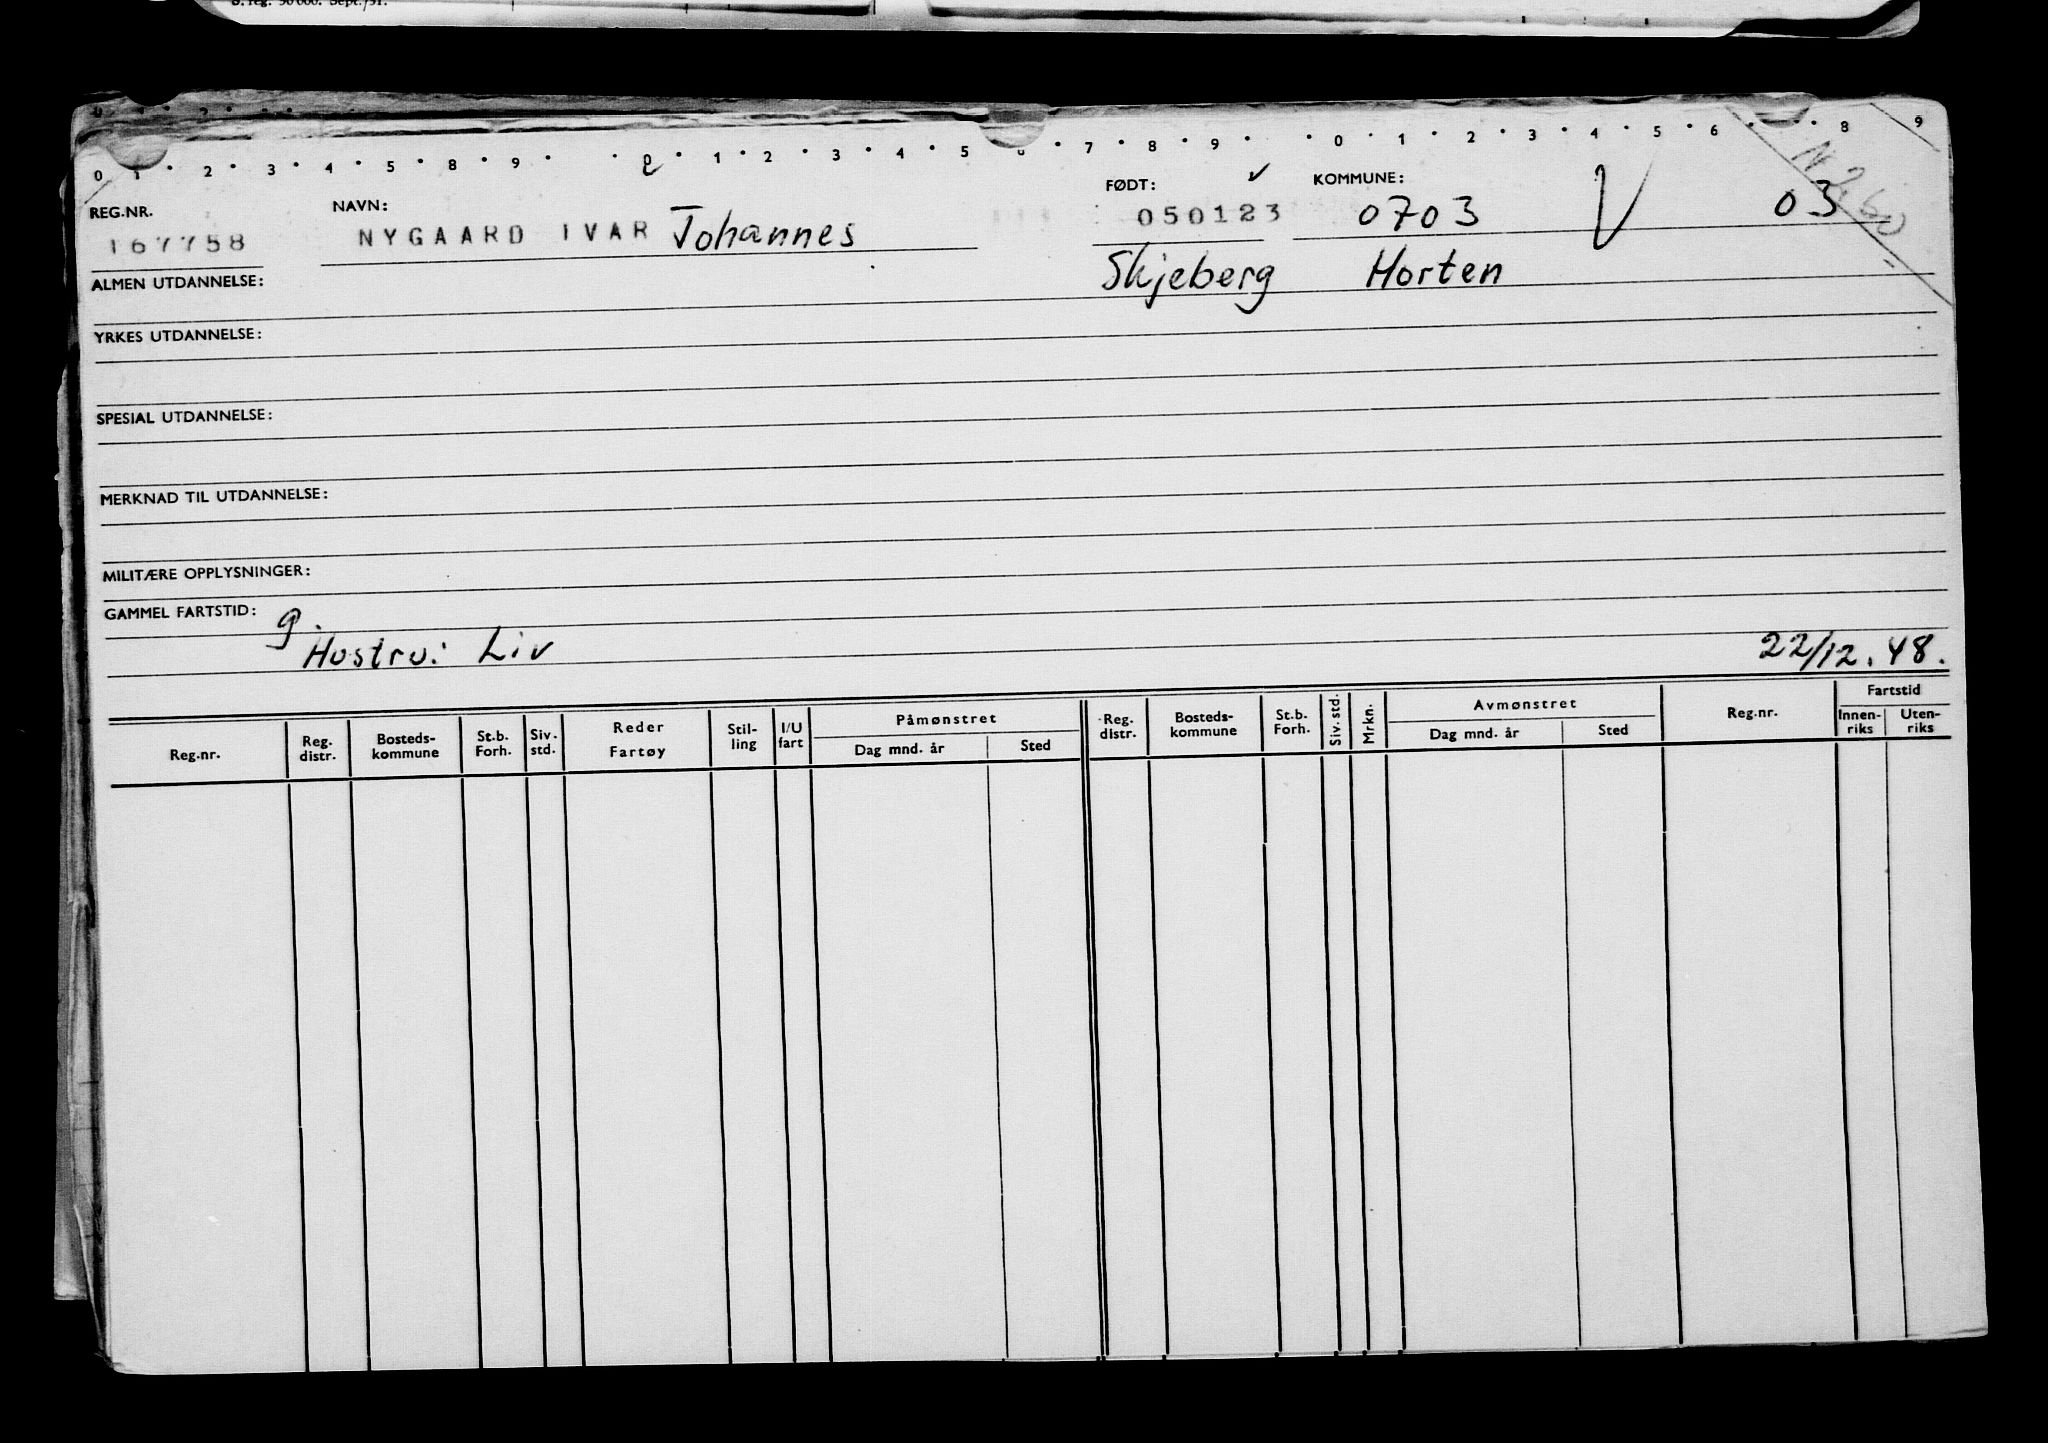 S. reg. 50 000. Sept./51.
0 1 2 3 4 5 8 9 0 1 2 3 4 5 6 7 8 9 0 1 2 3 4 5 6 8 9
REG.NR. NAVN: FØDT: KOMMUNE:
167758 NYGAARD IVAR Johannes 050123 0703 V 03
ALMEN UTDANNELSE: Skjeberg Horten
YRKES UTDANNELSE:
SPESIAL UTDANNELSE:
MERKNAD TIL UTDANNELSE:
MILITÆRE OPPLYSNINGER:
GAMMEL FARTSTID:
g. Hustru: Liv 22/12.48.
Reg.nr. Reg. distr. Bosteds-kommune St.b. Forh. Siv. std. Reder Fartøy Stil-ling I/U fart Påmønstret Dag mnd. år Sted Reg. distr. Bosteds-kommune St.b. Forh. Siv. std. Mrkn. Avmønstret Dag mnd. år Sted Reg.nr. Fartstid Innen-riks Uten-riks